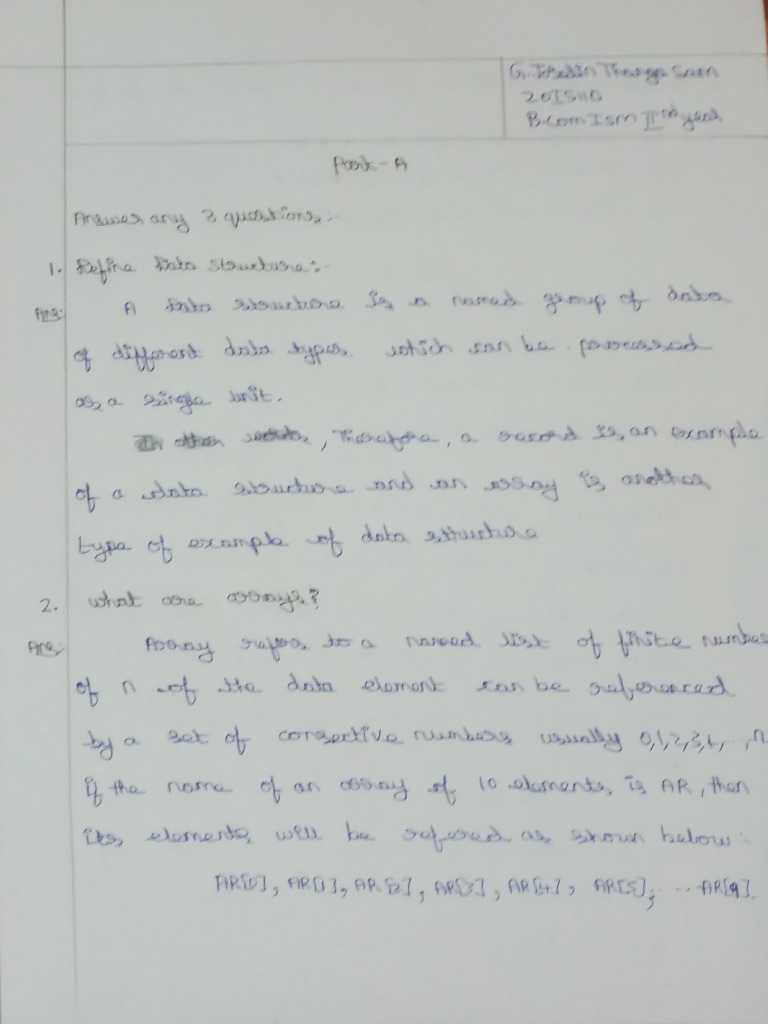 G. Jebalin Thanga Sam
20IS110
B.Com ISM IInd year
Part - A
Answer any 3 questions:-
1. Define Data Structure:-
Ans: A Data structure is a named group of data
of different data types which can be processed
as a single unit.
In other words, Therefore, a record is an example
of a data structure and an array is another
type of example of data structure
2. What are arrays?
Ans: Array refers to a named list of finite number
of n of the data element can be referenced
by a set of consective numbers usually 0,1,2,3,4,...,n
if the name of an array of 10 elements is AR, then
its elements will be refered as shown below:-
AR[0], AR[1], AR[2], AR[3], AR[4], AR[5], ... AR[9].